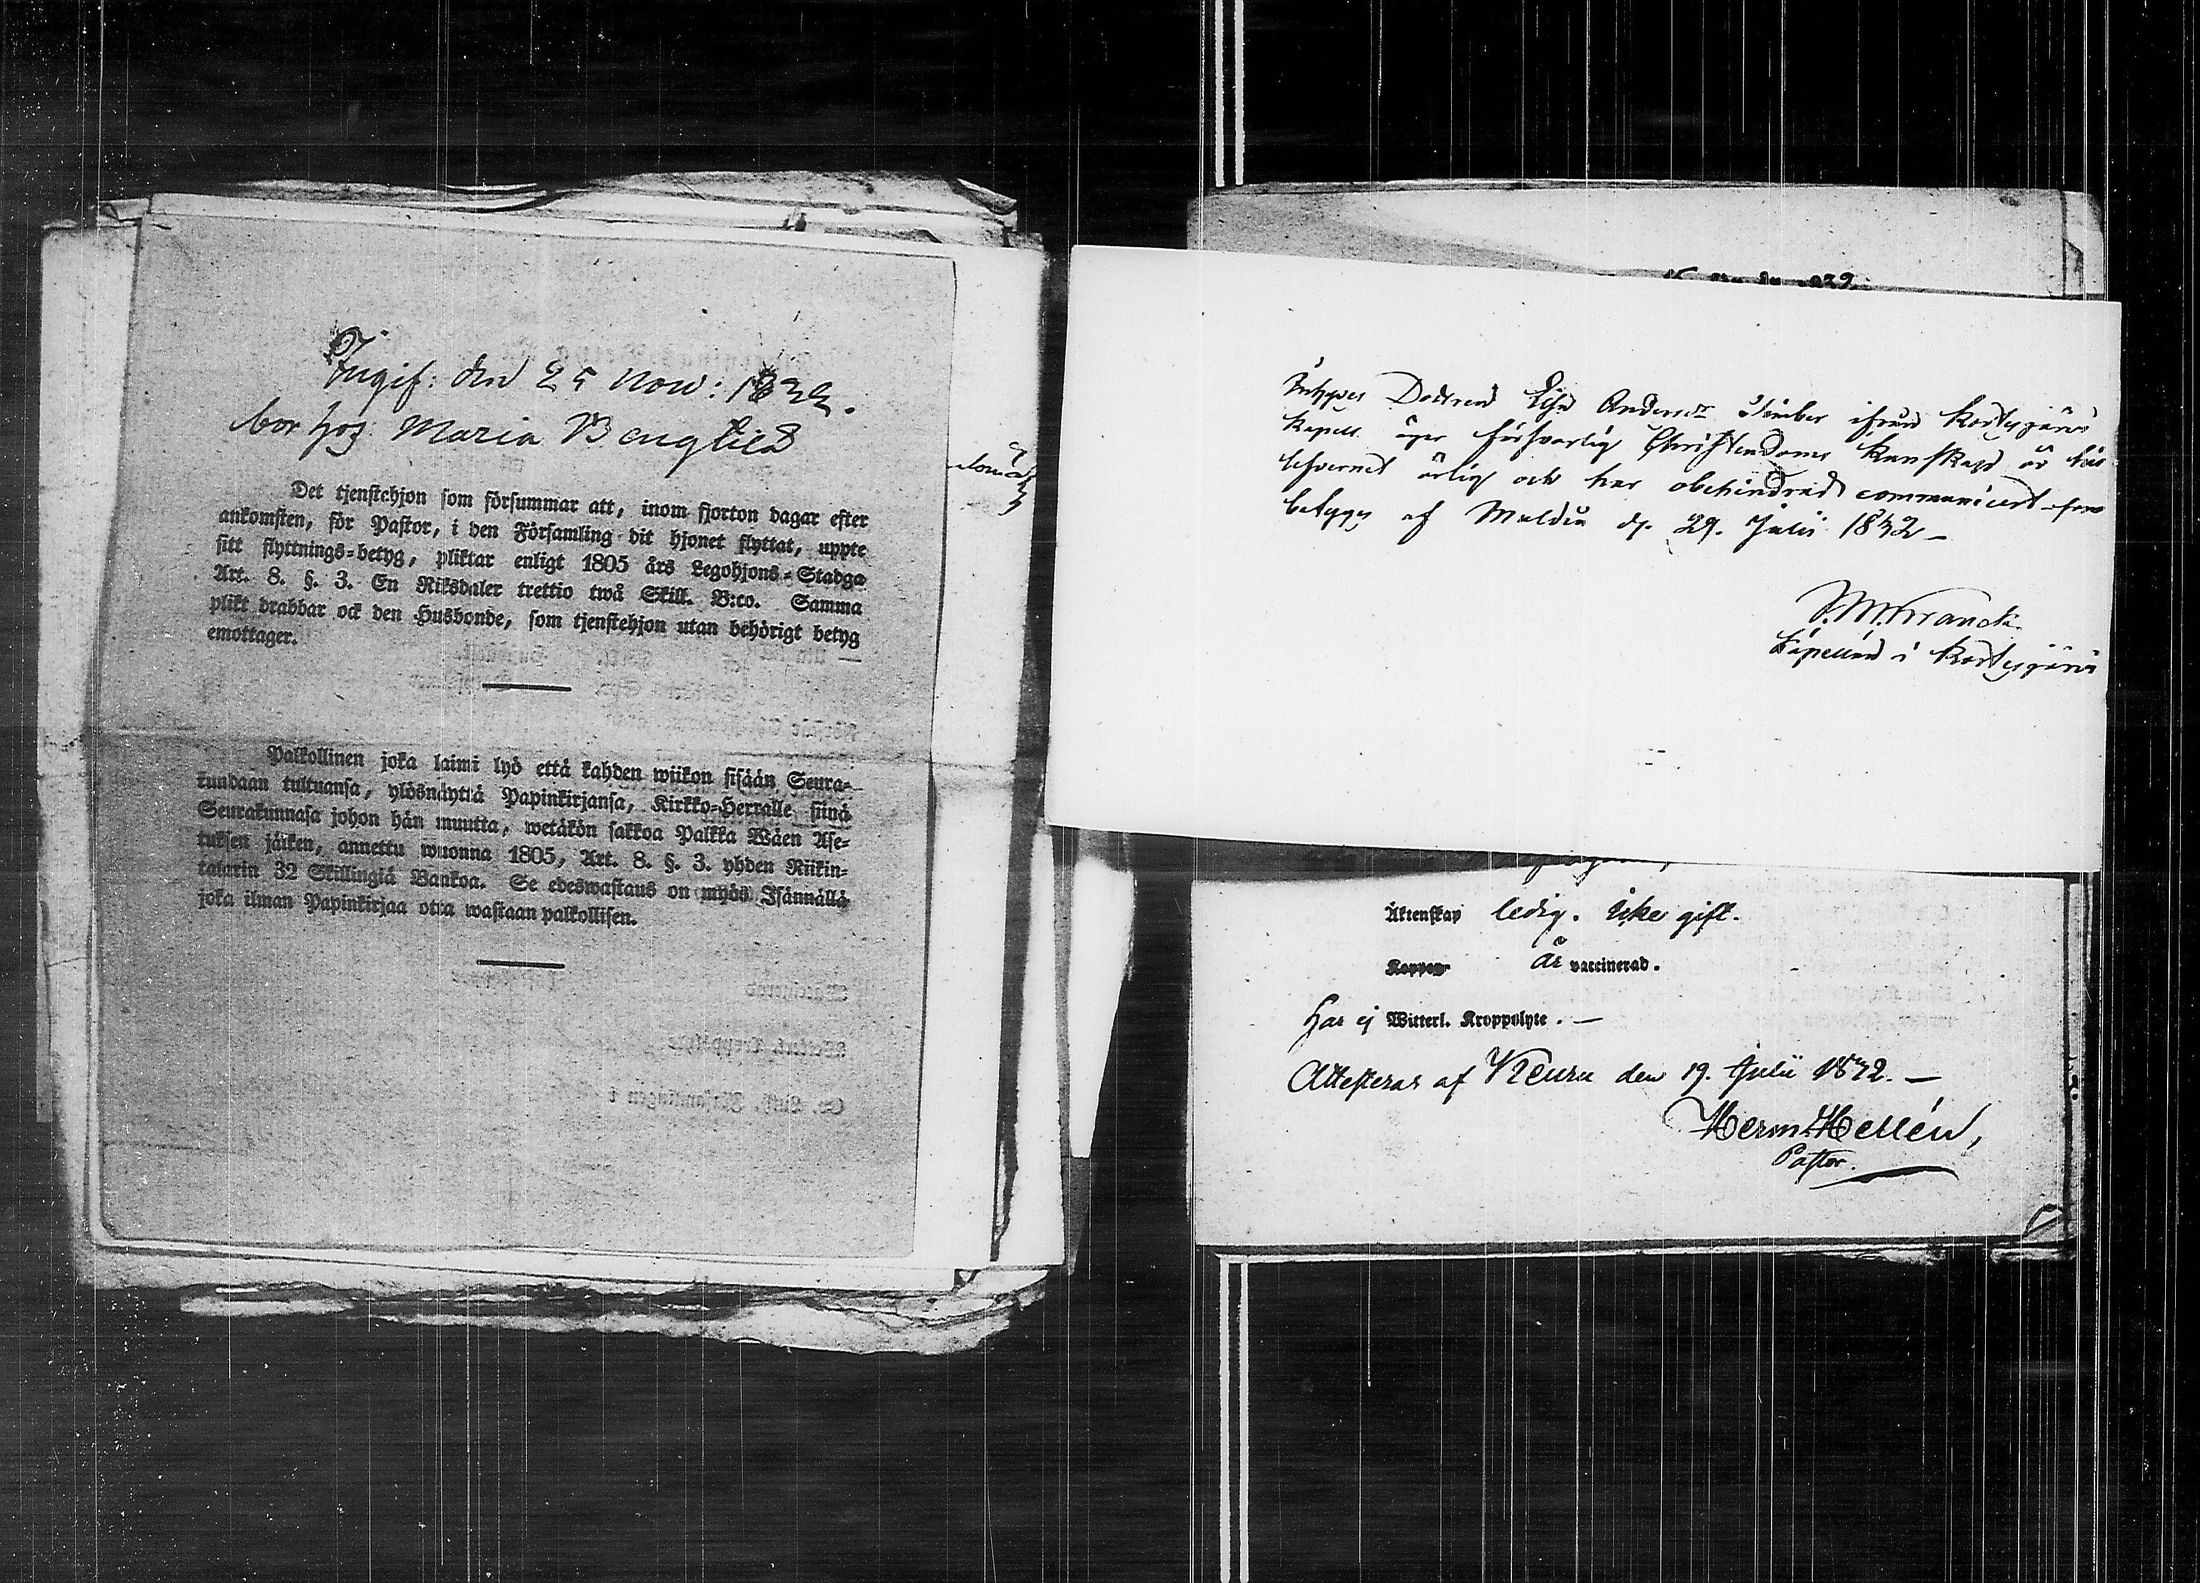 Ingif: den 25 Nov: 1832.
bor hos Maria Bengtled
Det tjenstehjon som försummar att, inom fjorton dagar efter
ankomsten, för Pastor, i den Församling dit hjonet flyttat, uppte
sitt flyttnings-betyg, pliktar enligt 1805 års Legohjons-Stadga
Art. 8. §. 3. En Riksdaler trettio twå Skill. B:co. Samma
plikt drabbar ock den Husbonde, som tjenstehjon utan behörigt betyg
emottager.
Palkollinen joka laimi lyö että kahden wiikon sisään Seura-
kundaan tultuansa, ylösnäyttä Papinkirjansa, Kirkko-Herralle siinä
Seurakunnasa johon hän muutta, wetäkön sakkoa Palkka Wäen Ase-
tuksen jälken, annettu wuonna 1805, Art. 8. §. 3. yhden Riikin-
talarin 32 Skillingiä Bankoa. Se edeswastaus on myös Isännällä
joka ilman Papinkirjaa otta wastaan palkollisen.
Inhyses Dottren Lisa Andersdr ifrån Kortesjärvi
Kapell äger försvarlig Christendoms kunskap är till
lefvernet ärlig och har obehindrad communicerat som
betygas af Meldin d. 29. Julii 1832 –
Kapellan i Kortesjärvi
Äktenskap ledig. icke gift.
Koppor är vaccinerad.
har ej Witterl. Kroppslyte. —
Attesteras af Keuru den 19. Julii 1832. —
Herm. Hellén,
Pastor.